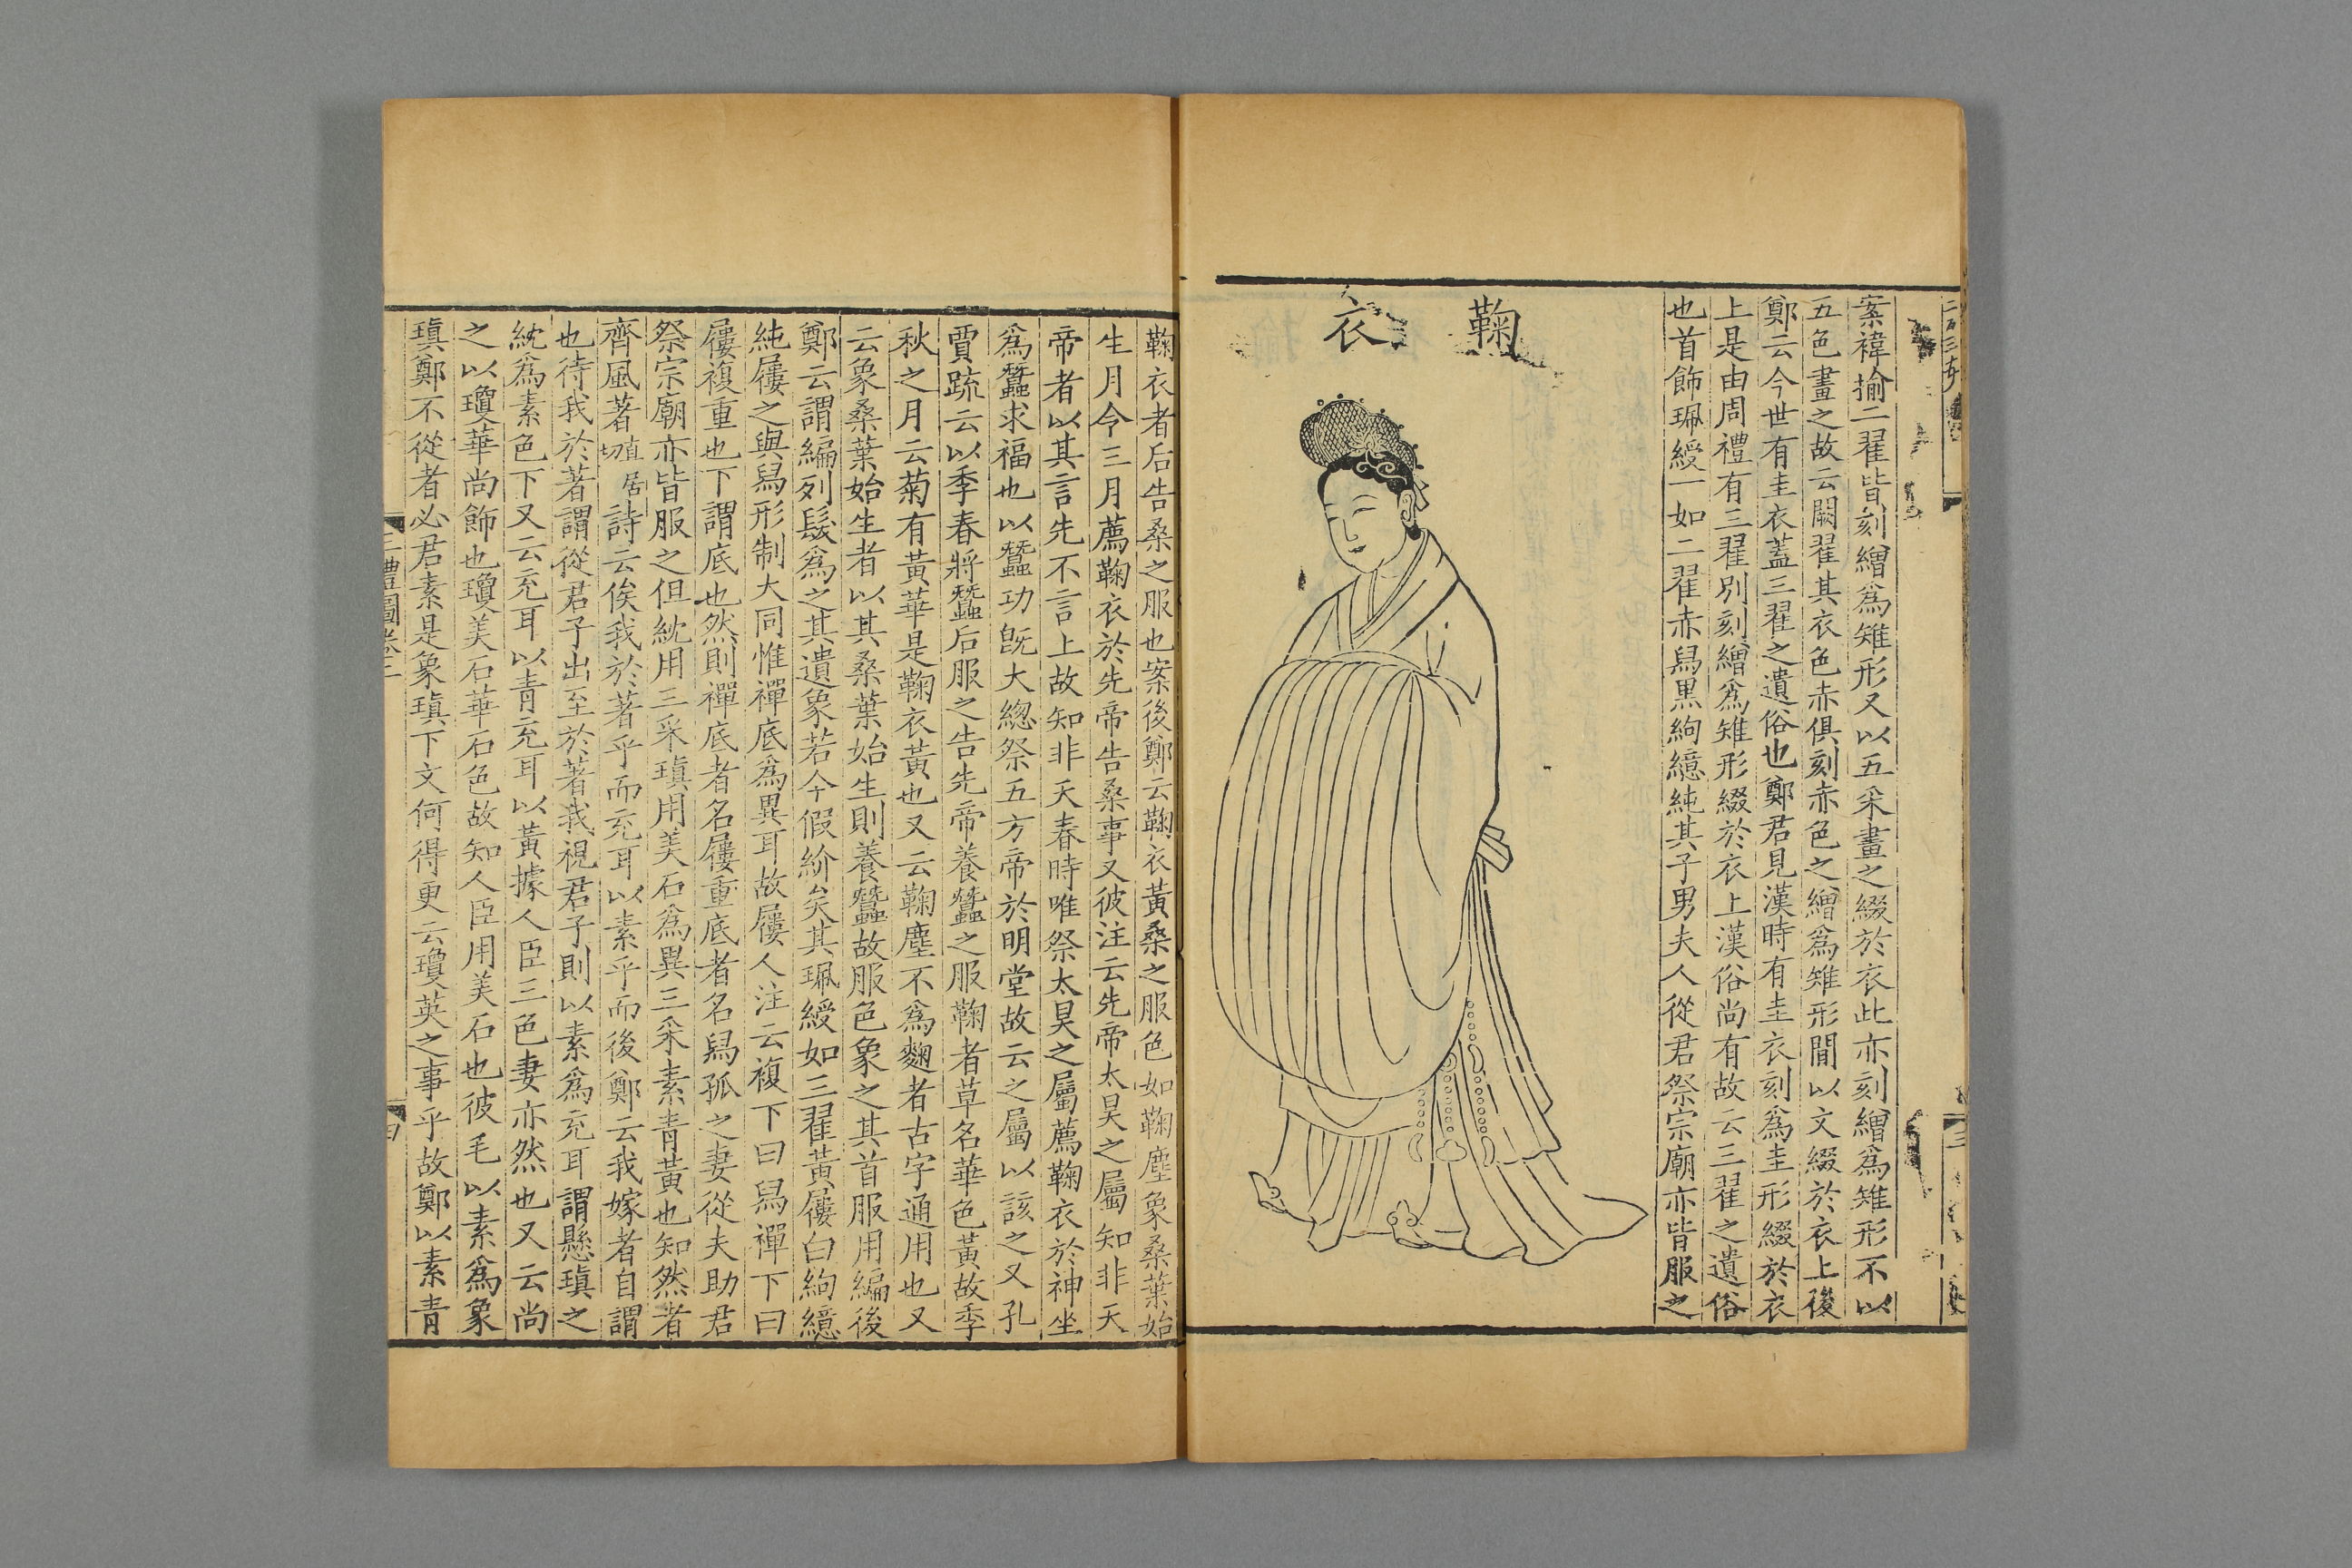 案褘揄二翟皆刻繒爲雉形又以五采畫之綴於衣此亦刻繒爲雉形不以
五色畫之故云闕翟其衣色赤俱刻赤色之繒爲雉形間以文綴於衣上後
鄭云今世有圭衣蓋三翟之遺俗也鄭君見漢時有圭衣刻爲圭形綴於衣
上是由周禮有三翟別刻繒爲雉形綴於衣上漢俗尚有故云三翟之遺俗
也首飾珮綬一如二翟赤舄黒絇繶純其子男夫人從君祭宗廟亦皆服之
鞠衣
鞠衣者后告桑之服也案後鄭云鞠衣黃桑之服色如鞠塵象桑葉始
生月令三月薦鞠衣於先帝告桑事又彼注云先帝太昊之屬知非天
帝者以其言先不言上故知非天春時唯祭太昊之屬薦鞠衣於神坐
爲蠶求福也以蠶功旣大緫祭五方帝於明堂故云之屬以該之又孔
賈疏云以季春將蠶后服之告先帝養蠶之服鞠者草名華色黃故季
秋之月云菊有黃華是鞠衣黃也又云鞠塵不爲麴者古字通用也又
云象桑葉始生者以其桑葉始生則養蠶故服色象之其首服用編後
鄭云謂編列髮爲之其遺象若今假紒矣其珮綬如三翟黃屨白絇繶
純屨之與舄形制大同惟襌底爲異耳故屨人注云複下曰舄襌下曰
屨複重也下謂底也然則襌底者名屨重底者名舄孤之妻從夫助君
祭宗廟亦皆服之但紞用三采瑱用美石爲異三采素青黃也知然者
齊風著直居切詩云俟我於著乎而充耳以素乎而後鄭云我嫁者自謂
也待我於著謂從君子出至於著我視君子則以素爲充耳謂懸瑱之
紞爲素色下又云充耳以青充耳以黃據人臣三色妻亦然也又云尚
之以瓊華尚飾也瓊美石華石色故知人臣用美石也彼毛以素爲象
瑱鄭不從者必君素是象瑱下文何得更云瓊英之事乎故鄭以素青
三禮圖卷二